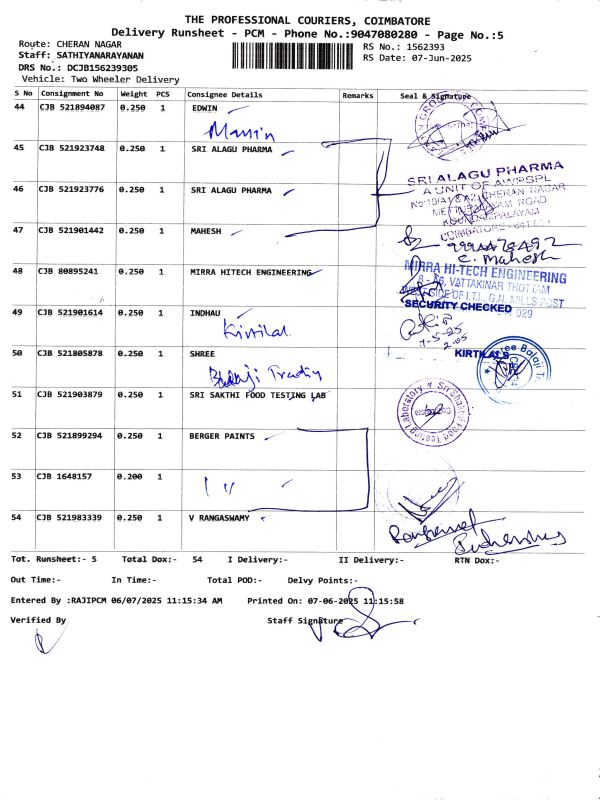 THE PROFESSIONAL COURIERS, COIMBATORE
Delivery Runsheet - PCM - Phone No.:9047080280 - Page No.:5
Route: CHERAN NAGAR
RS No.: 1562393
Staff: SATHIYANARAYANAN
RS Date: 07-Jun-2025
DRS No.: DCJB156239305
Vehicle: Two Wheeler Delivery
S No Consignment No Weight PCS Consignee Details Remarks Seal & Signature
44 CJB 521894087 0.250 1 EDWIN
45 CJB 521923748 0.250 1 SRI ALAGU PHARMA
SRI ALAGU PHARMA
A UNIT OF AWPSPL
CHERAN NAGAR
ROAD
46 CJB 521923776 0.250 1 SRI ALAGU PHARMA
COIMBATORE
47 CJB 521901442 0.250 1 MAHESH
C. Mahesh
48 CJB 80895241 0.250 1 MIRRA HITECH ENGINEERING
MIRRA HI-TECH ENGINEERING
VATTAKINAR THOTTAM
G.N. MILLS POST
SECURITY CHECKED
49 CJB 521901614 0.250 1 INDHAU
Kirtilal
50 CJB 521805878 0.250 1 SHREE
KIRTILALS
Balaji
51 CJB 521903879 0.250 1 SRI SAKTHI FOOD TESTING LAB
Food Testing Laboratory
52 CJB 521899294 0.250 1 BERGER PAINTS
53 CJB 1648157 0.200 1
54 CJB 521983339 0.250 1 V RANGASWAMY
Tot. Runsheet:- 5 Total Dox:- 54 I Delivery:- II Delivery:- RTN Dox:-
Out Time:- In Time:- Total POD:- Delvy Points:-
Entered By :RAJIPCM 06/07/2025 11:15:34 AM Printed On: 07-06-2025 11:15:58
Verified By Staff Signature